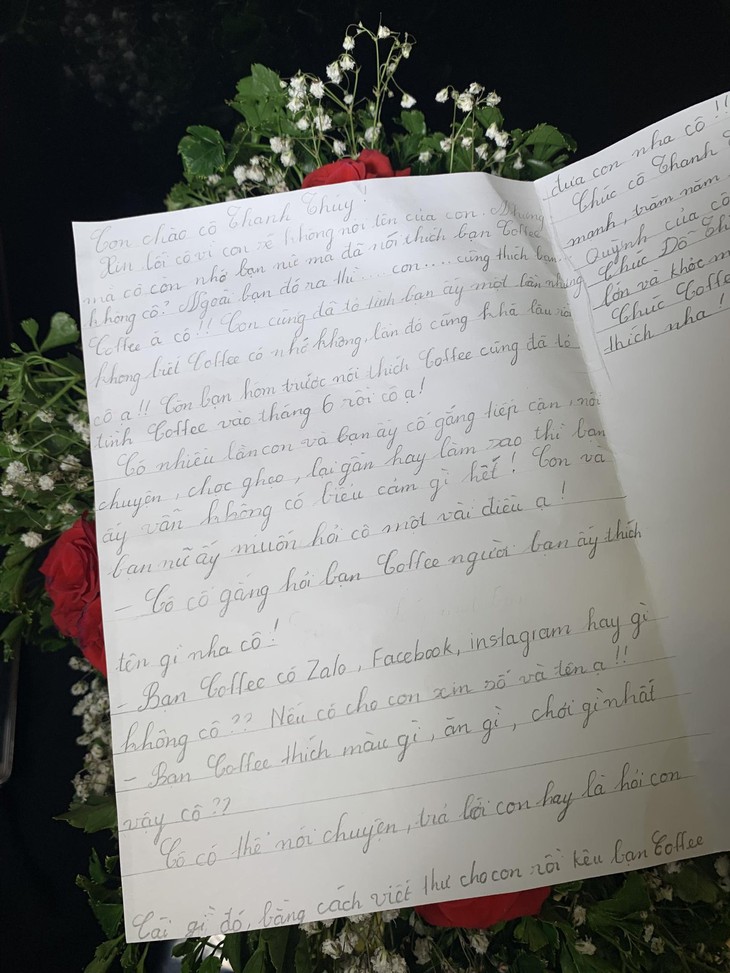 Con chào cô Thanh Thủy!
Xin lỗi cô vì con sẽ không nói tên của con. Nhưng
mà cô còn nhớ bạn nữ mà đã nói thích bạn Coffee
không cô? Ngoài bạn đó ra thì... con.... cũng thích bạn
Coffee á cô!! Con cũng đã tỏ tình bạn ấy một lần nhưng
không biết Coffee có nhớ không, lần đó cũng khá lâu rồi
cô ạ!! Còn bạn hôm trước nói thích Coffee cũng đã tỏ
tình Coffee vào tháng 6 rồi cô ạ!
Có nhiều lần con và bạn ấy cố gắng tiếp cận, nói
chuyện, chọc ghẹo, lại gần hay làm sao thì bạn
ấy vẫn không có biểu cảm gì hết! Con và
bạn nữ ấy muốn hỏi cô một vài điều ạ!
- Cô cố gắng hỏi bạn Coffee người bạn ấy thích
tên gì nha cô!
- Bạn Coffee có Zalo, Facebook, instagram hay gì
không cô?? Nếu có cho con xin số và tên ạ!!
- Bạn Coffee thích màu gì, ăn gì, chơi gì nhất
vậy cô??
Cô có thể nói chuyện, trả lời con hay là hỏi con
Cái gì đó, bằng cách viết thư cho con rồi kêu bạn Coffee
đưa con nha cô!!
Chúc cô Thanh
mạnh, trăm năm
Quỳnh của cô
Chúc Đỗ
lớn và khóc
Chúc Coffee
thích nha!